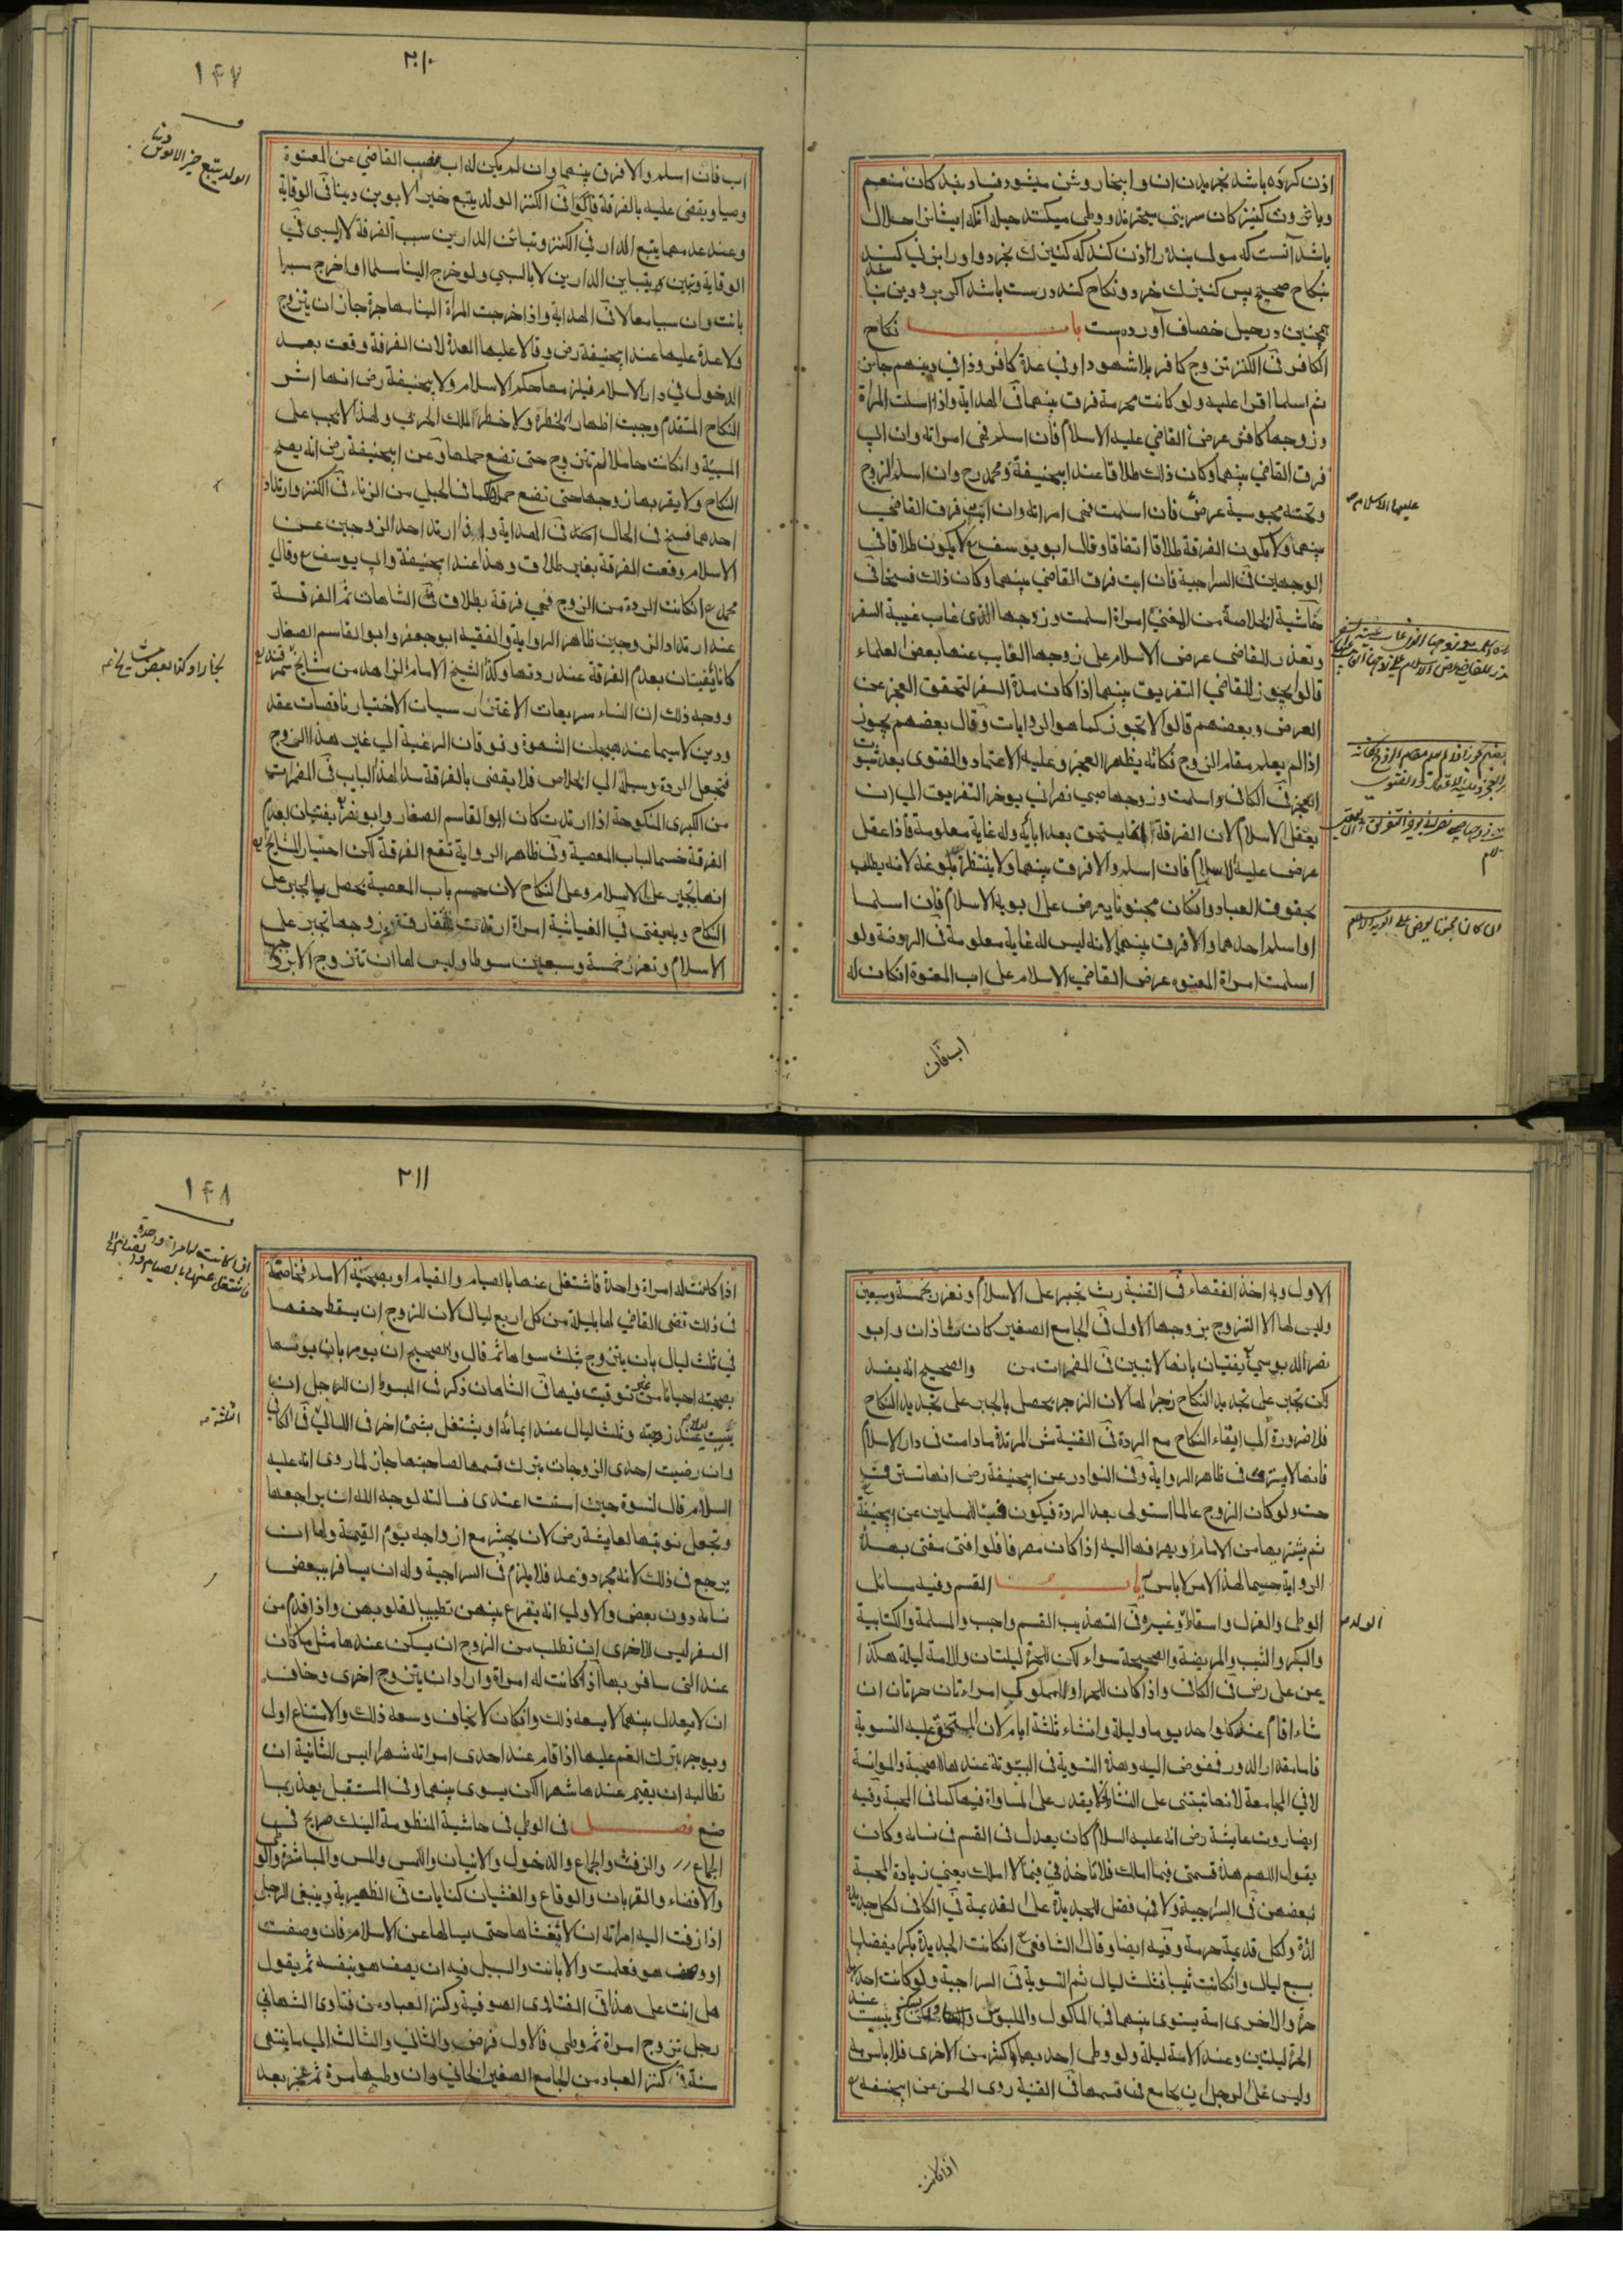 اذن کرده باشد بخریدن ان و ابخاروشن میشود فساد بند کان منعم
باشد آنست که مولی بنده را اذن کند که کنیزک بخرد و او را بزنی کند
بنکاح صحیح پس کنیزک خرد و نکاح کند درست باشد
همچنین در حیل خصاف آورده است باب نکاح
الکافر فی الکنز تزوج کافر بلا شهود او فی عدة کافر وذا فی دینهم جایز
ثم اسلما اقرا علیه ولو کانت محرمة فرق بینهما فی الهدایة واذا اسلمت المراة
وزوجها کافر عرض القاضی علیه الاسلام فان اسلم فهی امراته وان ابی
فرق القاضی بینهما وکان ذلک طلاقا عند ابیحنیفة ومحمد رح وان اسلم الزوج
وتحته مجوسیة عرض فان اسلمت فهی امراته وان ابت فرق القاضی
بینهما ولا یکون الفرقة طلاقا اتفاقا وقال ابو یوسف لا یکون طلاقا فی
الوجهین فی السراجیة فان ابت فرق القاضی بینهما وکان ذلک فسخا فی
حاشیة الخلاصة من المغنی امراة اسلمت وزوجها الذی غاب غیبة السفر
وتعذر للقاضی عرض الاسلام علی زوجها الغایب عنها بعض العلماء
قالوا یجوز للقاضی التفریق بینهما اذا کان مدة السفر لتحقق العجز عن
العرض وبعضهم قالوا لا یجوز کما هو الروایات وقال بعضهم یجوز
اذا لم یعلم مقام الزوج فکانه یظهر العجز وعلیه الاعتماد والفتوی بعد ثبوت
العجز فی الکافی واسلمت وزوجها صبی نصرانی یوخر التفریق الی ان
یعقل الاسلام لان الفرقة انما یستحق بعد ابایه وله غایة معلومة فاذا عقل
عرض علیه الاسلام فان اسلم والا فرق بینهما ولا ینتظر بلوغه لانه یطلب
بحقوق العباد وانکان مجنونا یعرض علی ابویه الاسلام فان اسلما
او اسلم احدهما والا فرق بینهما لانه لیس له غایة معلومة فی الروضة ولو
اسلمت امراة المعتوه عرض القاضی الاسلام علی اب المعتوة انکان له
علیها الاسلام
اب فان
۲۱۰
۱۴۷
الولد یتبع خیر الابوین دینا
اب فان اسلم والا فرق بینهما وان لم یکن له اب نصب القاضی عن المعتوة
وصیا ویقضی علیه بالفرقة فی الکنز الولد یتبع خیر الابوین دینا فی الوقایة
وعند عدمهما یتبع الدار فی الکنز وتباین الدارین سبب الفرقة لا السبی فی
الوقایة وتبین بتباین الدارین لا بالسبی ولو خرج الینا مسلما او اخرج سبیا
بانت وان سبیا معا لا فی الهدایة واذا خرجت المراة الینا مهاجرة جاز ان یتزوج
ولا عدة علیها عند ابیحنیفة رض وقالا علیها العدة لان الفرقة وقعت بعد
الدخول فی دار الاسلام فیلزمها حکم الاسلام ولابیحنیفة رض انها اثر
النکاح المتقدم وجبت اظهارا لخطره ولا خطر لملک الحربی ولهذا لا یجب علی
المسبیة وانکانت حاملا لم تتزوج حتی تضع حملها وعن ابیحنیفة رض انه یصح
النکاح ولا یقربها زوجها حتی تضع حملها کما فی الحبلی من الزناء فی الکنز وارتداد
احدهما فسخ فی الحال فی الهدایة واذا ارتد احد الزوجین عن
الاسلام وقعت الفرقة بغیر طلاق وهذا عند ابیحنیفة وابی یوسف وقال
محمد انکانت الردة من الزوج فهی فرقة بطلاق فی الشاهان ثم الفرقة
عند ارتداد الزوجین ظاهر الروایة والفقیه ابو جعفر وابو القاسم الصفار
کانا یفتیان بعدم الفرقة عند ردتها وکذا الشیخ الامام الزاهد من مشایخ سمرقند
ووجه ذلک ان النساء سریعات الاغترار سیات الاختیار ناقصات عقل
ودین لا سیما عند هیجان الشهوة وتوقان الرغبة الی غیر هذا الزوج
فتجعل الردة وسیلة الی الخلاص فلا یقضی بالفرقة سدا لهذا الباب فی المضمرات
من الکبری المنکوحة اذا ارتدت کان ابو القاسم الصفار وابو نصر یفتیان بعدم
الفرقة حسما لباب المعصیة وفی ظاهر الروایة تقع الفرقة لکن اختیار المشایخ
انها تجبر علی الاسلام وعلی النکاح لان حسم باب المعصیة یحصل بالجبر علی
النکاح وبه یفتی فی الغیاثیة امراة ارتدت لمفارقة زوجها تجبر علی
الاسلام وتعزر خمسة وسبعین سوطا ولیس لها ان تتزوج الا بزوجها
الاول وبه اخذ الفقهاء فی القنیة تجبر علی الاسلام وتعزر بخمسة وسبعین
ولیس لها الا التزوج بزوجها الاول فی الجامع الصغیر کان شاذان وابو
یفتیان بانها لا تبین فی المضمرات والصحیح انه یفسد
لکن تجبر علی تجدید النکاح زجرا لها لان الزجر یحصل بالجبر علی تجدید النکاح
فلا ضرورة الی ابقاء النکاح مع الردة فی القنیة المرتدة ما دامت فی دار الاسلام
فانها لا یسترق فی ظاهر الروایة وفی النوادر عن ابیحنیفة رض انها تسترق
ولو کان الزوج عالما استولی بعد الردة فیکون فیئا للمسلمین عن ابیحنیفة
ثم یشتریها من الامام او یصرفها الیه اذا کان مصرفا فلو افتی مفتی بهذه
الروایة حسما لهذا الامر لا باس باب القسم وفیه مسائل
الوطی والعزل واسقاط وغیره فی التهذیب القسم واجب والمسلمة والکتابیة
والبکر والثیب والمریضة والصحیحة سواء لکن للحرة لیلتان وللامة لیلة هکذا
عن علی رض فی الکافی واذا کان للحر او للمملوک امراءتان حرتان ان
شاء اقام عند کل واحد یوما ولیلة وانشاء ثلثة ایام لان المستحق علیه التسویة
فاما مقدار الدور ففوض الیه وهذه التسویة فی البیتوتة عندها للصحبة والموانسة
لا فی المجامعة لانها تبتنی علی النشاط فلا یقدر علی المساواة فیها کما فی المحبة وفیه
ایضا روت عایشة رض انه علیه السلام کان یعدل فی القسم فی نسائه وکان
یقول اللهم هذه قسمتی فیما املک فلا تاخذنی فیما لا املک یعنی زیادة المحبة
لبعضهن فی السراجیة ولا فضل للجدیدة علی القدیمة فی الکافی لکل جدیدة
لذة ولکل قدیمة حرمة وفیه ایضا وقال الشافعی انکانت الجدیدة بکرا یفضلها
بسبع لیال وانکانت ثیبا فثلث لیال ثم التسویة فی السراجیة ولو کانت احدیهما
حرة والاخری امة یسوی بینهما فی الماکول والملبوس
الحرة لیلتین وعند الامة لیلة ولو وطی احدیهما اکثر من الاخری فلا باس به
ولیس علی الرجل ان یجامع فی قسمها فی القنیة روی الحسن عن ابیحنیفة
اذا کانت
۲۱۱
۱۴۸
اذا کانت له امراة واحدة فاشتغل عنها بالصیام والقیام او بصحبة الاماء فخاصمته
فی ذلک قضی القاضی لها بلیلة من کل اربع لیال لان للزوج ان یسقط حقها
فی ثلث لیال بان یتزوج بثلث سواها ثم قال والصحیح ان یومر بان یونسها
بصحبته احیانا من غیر توقیت فیها فی الشاهان ذکر فی المبسوط ان للرجل ان
یبیت عند زوجته وثلث لیال عند امائه او یشتغل بشئ اخر فی اللیالی فی الکافی
وان رضیت احدی الزوجات بترک قسمها لصاحبتها جاز لما روی انه علیه
السلام قال لسودة حین اسنت اعتدی فسالته لوجه الله ان یراجعها
وتجعل نوبتها لعایشة رض لان یحشر مع ازواجه یوم القیمة ولها ان
یرجع فی ذلک لانه مجرد وعد فلا یلزم فی السراجیة وله ان یسافر ببعض
نسائه دون بعض والاولی انه یقرع بینهن تطییبا لقلوبهن واذا قدم من
السفر لیس للاخری ان تطلب من الزوج ان یسکن عندها مثل ما کان
عند التی سافر بها اذا کانت له امراة واراد ان یتزوج اخری وخاف
ان لا یعدل بینهما لا یسعه ذلک وانکان لا یخاف وسعه ذلک والامتناع اولی
ویوجر بترک الغم علیها اذا اقام عند احدی امراته شهرا لیس للثانیة ان
تطالبه ان یقیم عندها شهرا لکن یسوی بینهما وفی المستقبل
فصل فی الوطی فی حاشیة المنظومة النیک صریح فی
الجماع والرفث والجماع والدخول والاتیان واللمس والمس والمباشرة
والافضاء والقربان والوقاع والغشیان کنایات فی الظهیریة وینبغی للرجل
اذا زفت الیه امراته ان لا یغشاها حتی یسالها عن الاسلام فان وصفت
او وصف هو فعلمت والا بانت والسبیل فیه ان یصف هو بنفسه ثم یقول
هل انت علی هذا فی الفتاوی الصوفیة وکنز العباد من فتاوی
رجل تزوج امراة ثم وطی فالاول فرض والثانی والثالث الی ما ینتهی
سنة فی کنز العباد من الجامع الصغیر الخانی وان وطیها مرة ثم عجز بعد